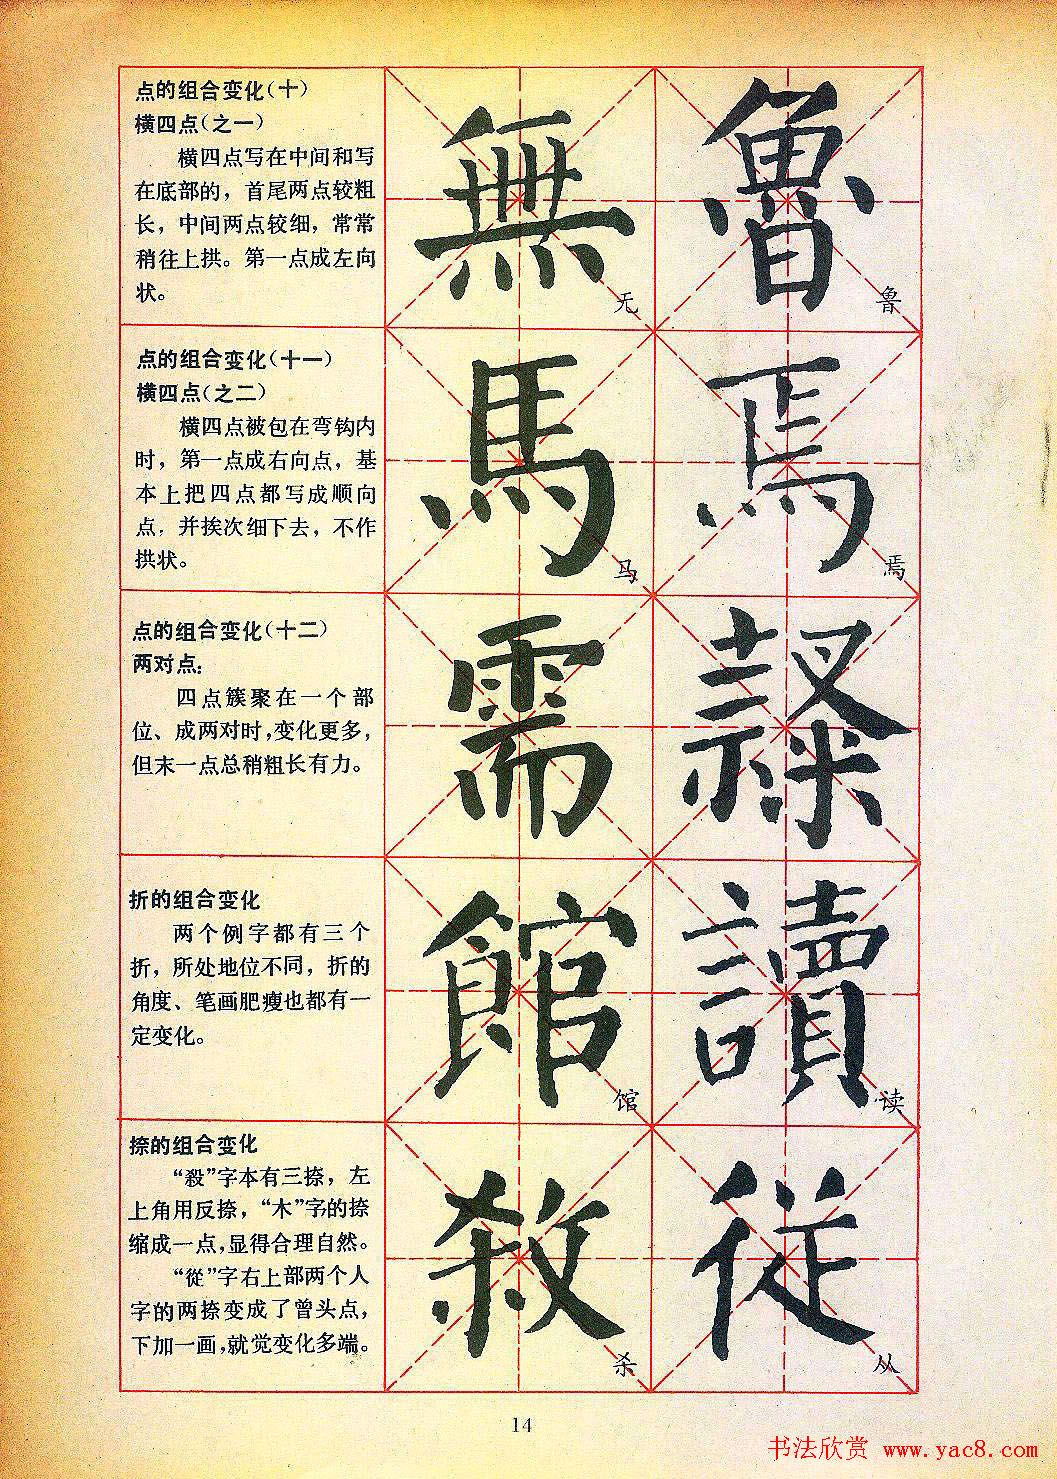 点的组合变化（十）
横四点（之一）
横四点写在中间和写
在底部的，首尾两点较粗
长，中间两点较细，常常
稍往上拱。第一点成左向
状。
無 无
魯 鲁
点的组合变化（十一）
横四点（之二）
横四点被包在弯钩内
时，第一点成右向点，基
本上把四点都写成顺向
点，并挨次细下去，不作
拱状。
馬 马
焉 焉
点的组合变化（十二）
两对点：
四点簇聚在一个部
位、成两对时，变化更多，
但末一点总稍粗长有力。
需
折的组合变化
两个例字都有三个
折，所处地位不同，折的
角度、笔画肥瘦也都有一
定变化。
館 馆
讀 读
捺的组合变化
“殺”字本有三捺，左
上角用反捺，“木”字的捺
缩成一点，显得合理自然。
“從”字右上部两个人
字的两捺变成了曾头点，
下加一画，就觉变化多端。
杀
從 从
14
书法欣赏 www.yac8.com